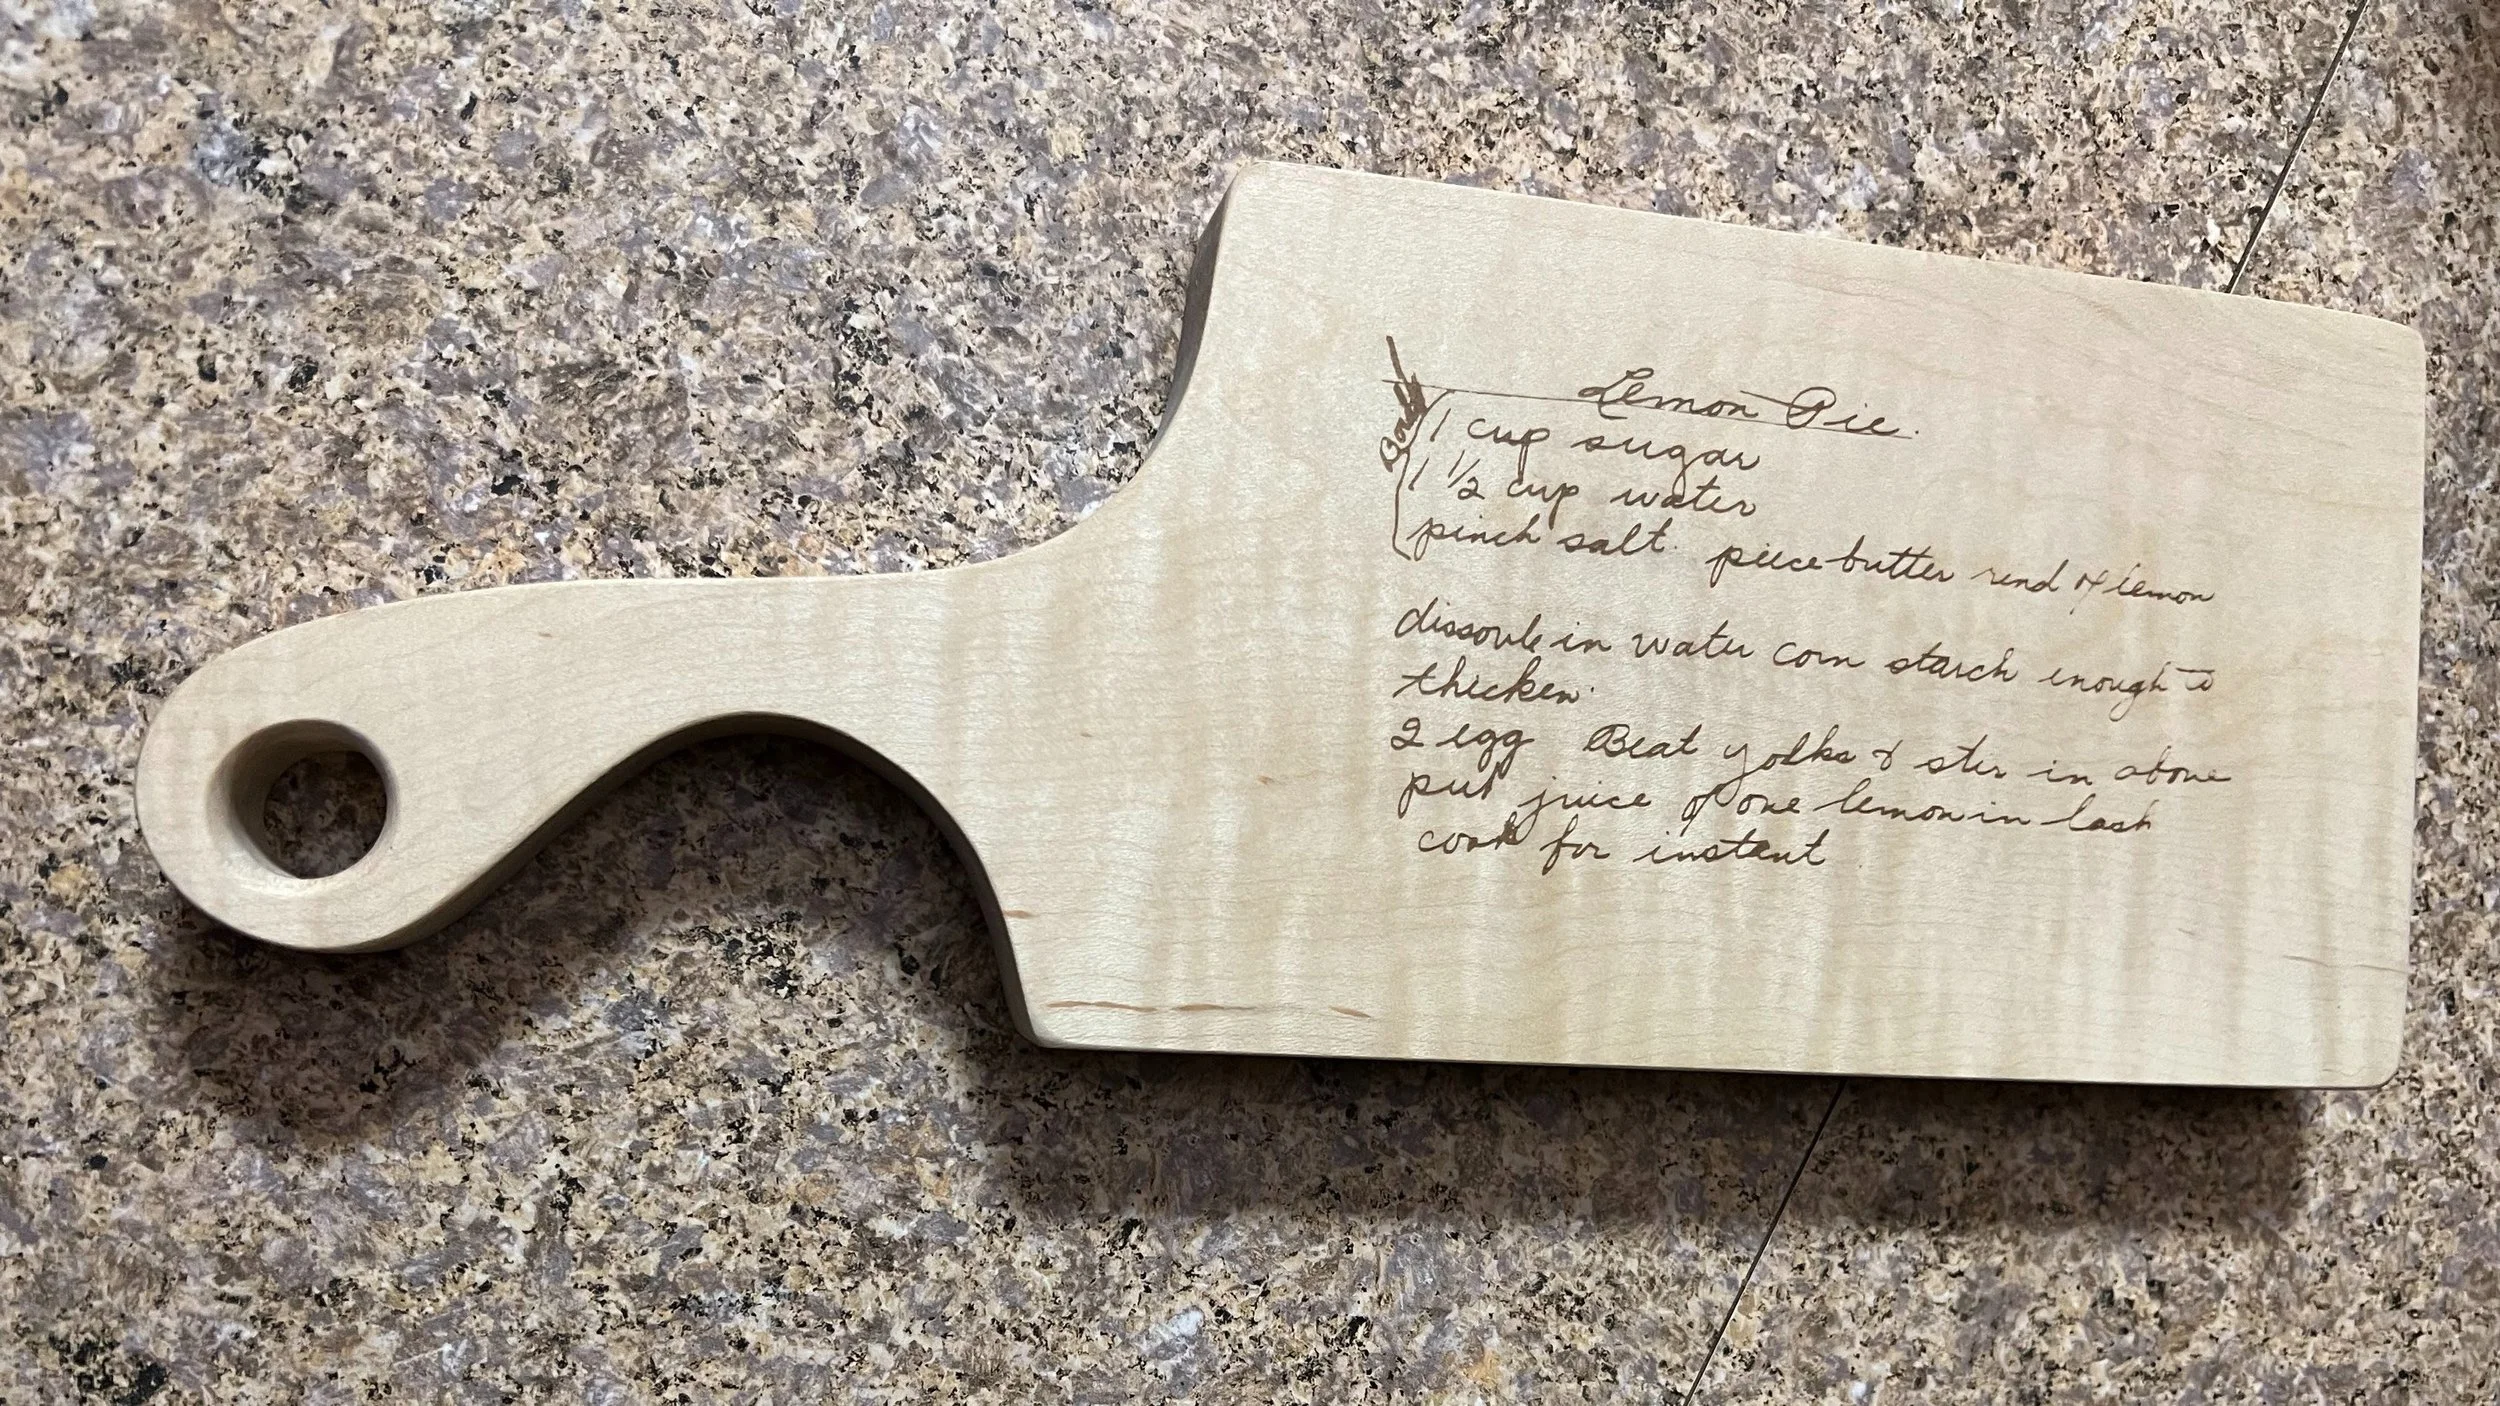 Lemon Pie.
Boil
1 cup sugar
1 1/2 cup water
pinch salt. piece butter rind of lemon
dissoule in water corn starch enough to
thicken.
2 egg Beat yolks & stir in above
put juice of one lemon in last
cook for instant